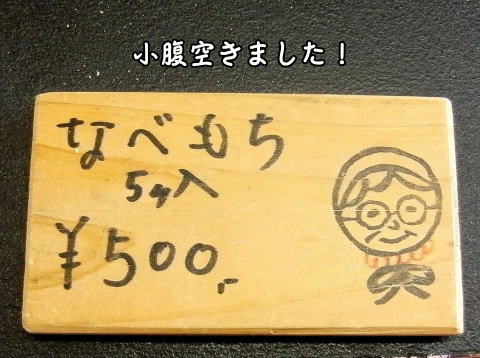 小腹空きました！
なべもち
5ヶ入
¥500,-